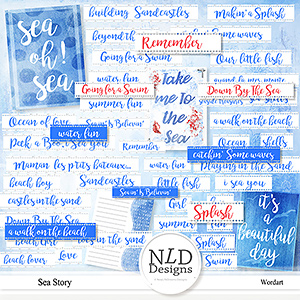 sea
oh!
sea
building Sandcastles
Makin'a Splash
beyond the
Remember
Our little fish
Going for a Swim
Going for a Swim
water fun
Take
me To
the
Sea
Down By The Sea
summer fun
Ocean of love
shells
water fun
Peek a Boo, I Sea You
catchin' Some waves
Maman, les p'tits bateaux...
Playing in the Sand
beach boy
Sandcastles
little fish
castles in the sand
Seain' Is Believin'
i sea you
Down By The Sea
Girl
a walk on the beach
Splash
it's
a
beautiful
day
summer fun
in the sand
beach Girl
Love
Swim
NLD
Designs
Sea Story
Wordart